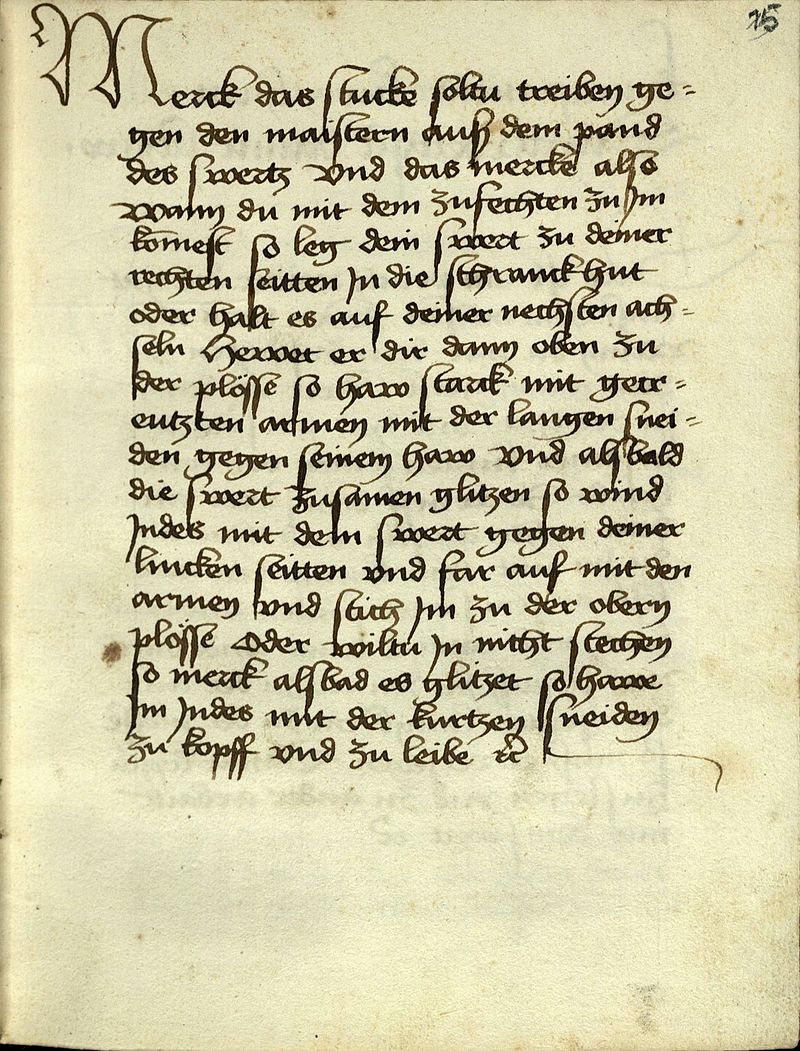 75
Merck das stucke soltu treiben ge=
gen den maistern auß dem pand
des swertz vnd das mercke also
wann du mit dem zufechten zu Im
kömest so leg dein swert zu deiner
rechten seitten In die schranckhut
oder halt es auf deiner nechsten ach=
seln Hewet er dir dann oben zu
der plösse so haw starck mit gecr=
eutzten armen mit der langen snei=
den gegen seinem haw vnd alsbald
die swert zusamen glitzen so wind
Indes mit dem swert gegen deiner
lincken seitten vnd far auf mit den
armen vnd stich Im zu der obern
plösse Oder wiltu In nicht stechen
so merck alsbad es glitzet so hawe
Im Indes mit der kurtzen sneiden
zu kopff vnd zu leibe rc̃